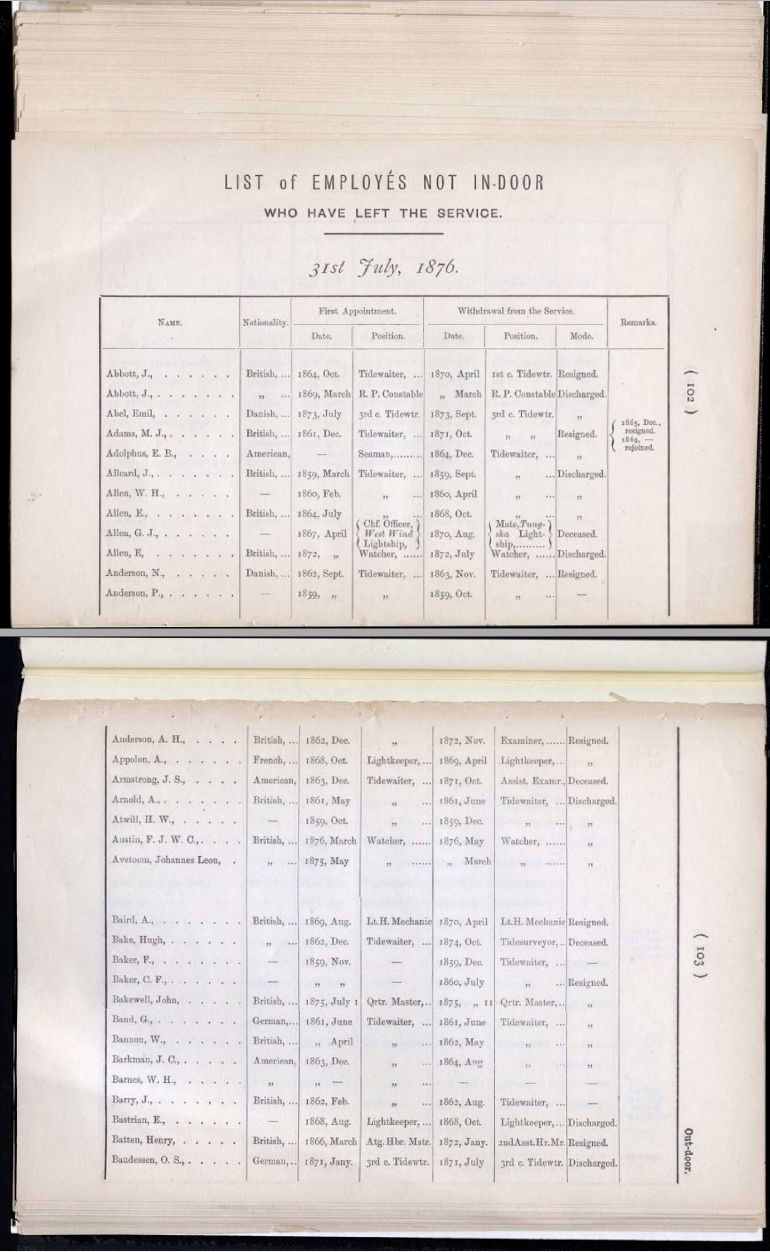 LIST of EMPLOYÉS NOT IN-DOOR
WHO HAVE LEFT THE SERVICE.
31st July, 1876.
NAME. Nationality. First Appointment. Withdrawal from the Service. Remarks.
Date. Position. Date. Position. Mode.
Abbott, J., . . . . . . British, ... 1864, Oct. Tidewaiter, ... 1870, April 1st c. Tidewtr. Resigned.
Abbott, J., . . . . . . „ ... 1869, March R. P. Constable „ March R. P. Constable Discharged.
Abel, Emil, . . . . . . Danish, ... 1873, July 3rd c. Tidewtr. 1873, Sept. 3rd c. Tidewtr. „
Adams, M. J., . . . . . British, ... 1861, Dec. Tidewaiter, ... 1871, Oct. „ „ Resigned. { 1865, Dec., resigned. 1869, — rejoined.
Adolphus, E. B., . . . . American, — Seaman,........ 1864, Dec. Tidewaiter, ... „
Allcard, J., . . . . . . British, ... 1859, March Tidewaiter, ... 1859, Sept. „ ... Discharged.
Allen, W. H., . . . . . — 1860, Feb. „ ... 1860, April „ ... „
Allen, E., . . . . . . British, ... 1864, July „ ... 1868, Oct. „ ... „
Allen, G. J., . . . . . — 1867, April { Chf. Officer, West Wind Lightship, } 1870, Aug. { Mate, Tung-sha Light-ship,......... } Deceased.
Allen, E, . . . . . . British, ... 1872, „ Watcher, ...... 1872, July Watcher, ...... Discharged.
Anderson, N., . . . . . Danish, ... 1862, Sept. Tidewaiter, ... 1863, Nov. Tidewaiter, ... Resigned.
Anderson, P., . . . . . — 1859, „ „ 1859, Oct. „ ... —
( 102 )
Anderson, A. H., . . . . British, ... 1862, Dec. „ 1872, Nov. Examiner, ...... Resigned.
Appolon, A., . . . . . French, ... 1868, Oct. Lightkeeper, ... 1869, April Lightkeeper, ... „
Armstrong, J. S., . . . . American, 1863, Dec. Tidewaiter, ... 1871, Oct. Assist. Examr., Deceased.
Arnold, A., . . . . . . British, ... 1861, May „ ... 1861, June Tidewaiter, ... Discharged.
Atwill, H. W., . . . . . — 1859, Oct. „ ... 1859, Dec. „ ... „
Austin, F. J. W. C., . . . British, ... 1876, March Watcher, ...... 1876, May Watcher, ...... „
Avetoom, Johannes Leon, . „ ... 1875, May „ ...... „ March „ ...... „
Baird, A., . . . . . . British, ... 1869, Aug. Lt.H. Mechanic 1870, April Lt.H. Mechanic Resigned.
Bake, Hugh, . . . . . . „ ... 1862, Dec. Tidewaiter, ... 1874, Oct. Tidesurveyor, .. Deceased.
Baker, F., . . . . . . — 1859, Nov. — 1859, Dec. Tidewaiter, ... —
Baker, C. F., . . . . . — „ „ — 1860, July „ ... Resigned.
Bakewell, John, . . . . British, ... 1875, July 1 Qrtr. Master, .. 1875, „ 11 Qrtr. Master, .. „
Band, G., . . . . . . German, ... 1861, June Tidewaiter, ... 1861, June Tidewaiter, ... „
Bannon, W., . . . . . British, ... „ April „ ... 1862, May „ ... „
Barkman, J. C., . . . . American, 1863, Dec. „ ... 1864, Aug „ ... „
Barnes, W. H., . . . . „ „ — „ ... — — —
Barry, J., . . . . . . British, ... 1862, Feb. „ ... 1862, Aug. Tidewaiter, ... —
Bastrian, E., . . . . . — 1868, Aug. Lightkeeper, ... 1868, Oct. Lightkeeper, ... Discharged.
Batten, Henry, . . . . . British, ... 1866, March Atg. Hbr. Matr. 1872, Jany. 2nd Asst. Hr. Mr. Resigned.
Baudessen, O. S., . . . . German, .. 1871, Jany. 3rd c. Tidewtr. 1871, July 3rd c. Tidewtr. Discharged.
( 103 )
Out-door.